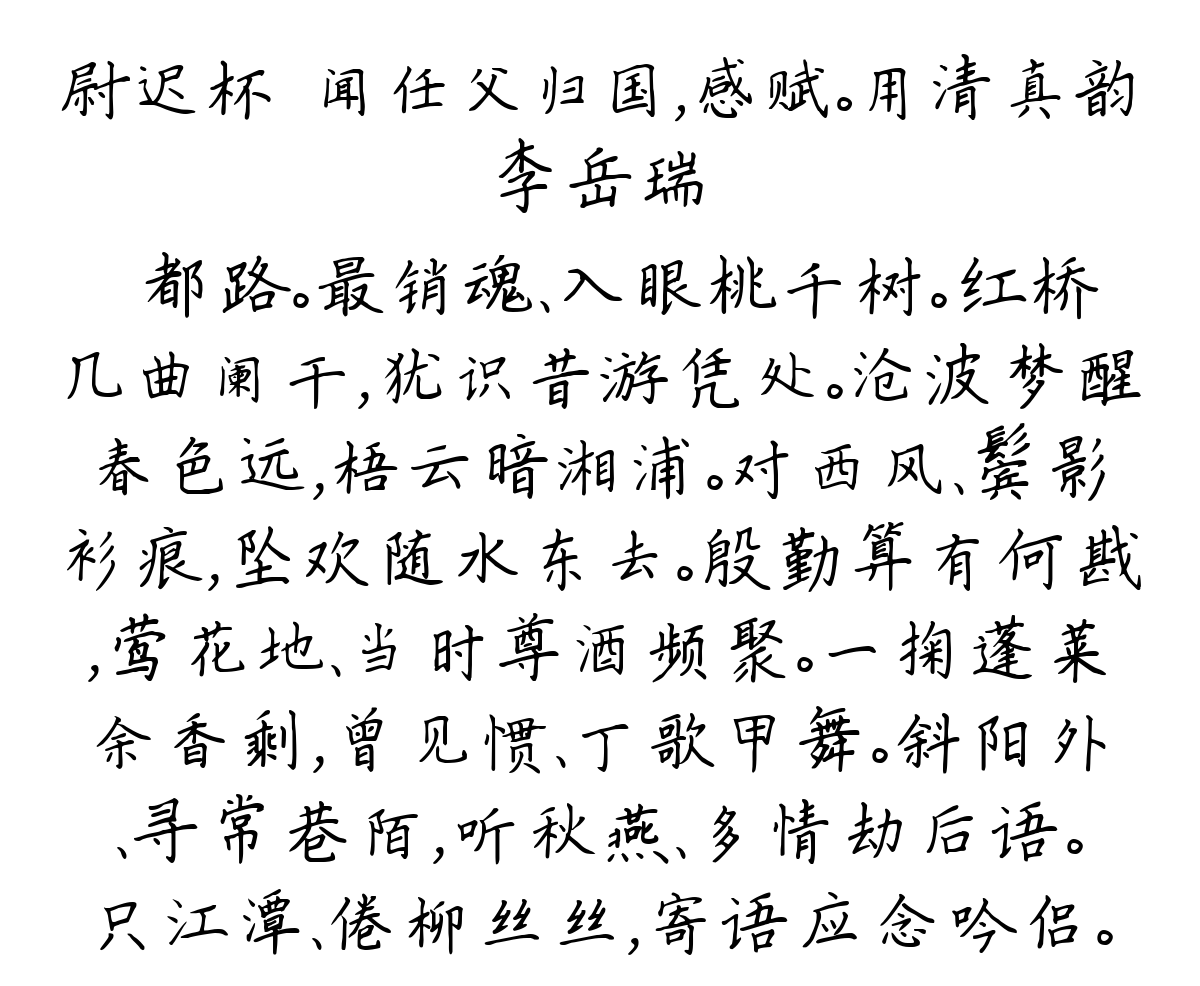 尉迟杯 闻任父归国,感赋。用清真韵
李岳瑞
都路。最销魂、入眼桃千树。红桥
几曲阑干,犹识昔游凭处。沧波梦醒
春色远,梧云暗湘浦。对西风、鬓影
衫痕,坠欢随水东去。殷勤算有何戡
,莺花地、当时尊酒频聚。一掬蓬莱
余香剩,曾见惯、丁歌甲舞。斜阳外
、寻常巷陌,听秋燕、多情劫后语。
只江潭、倦柳丝丝,寄语应念吟侣。